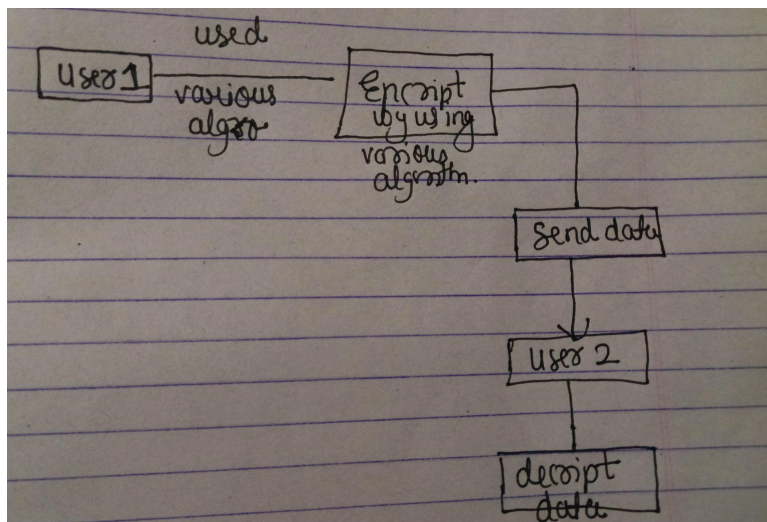 used
User 1
various
algro
Encript
by using
various
algorithm.
Send data
User 2
decript
data